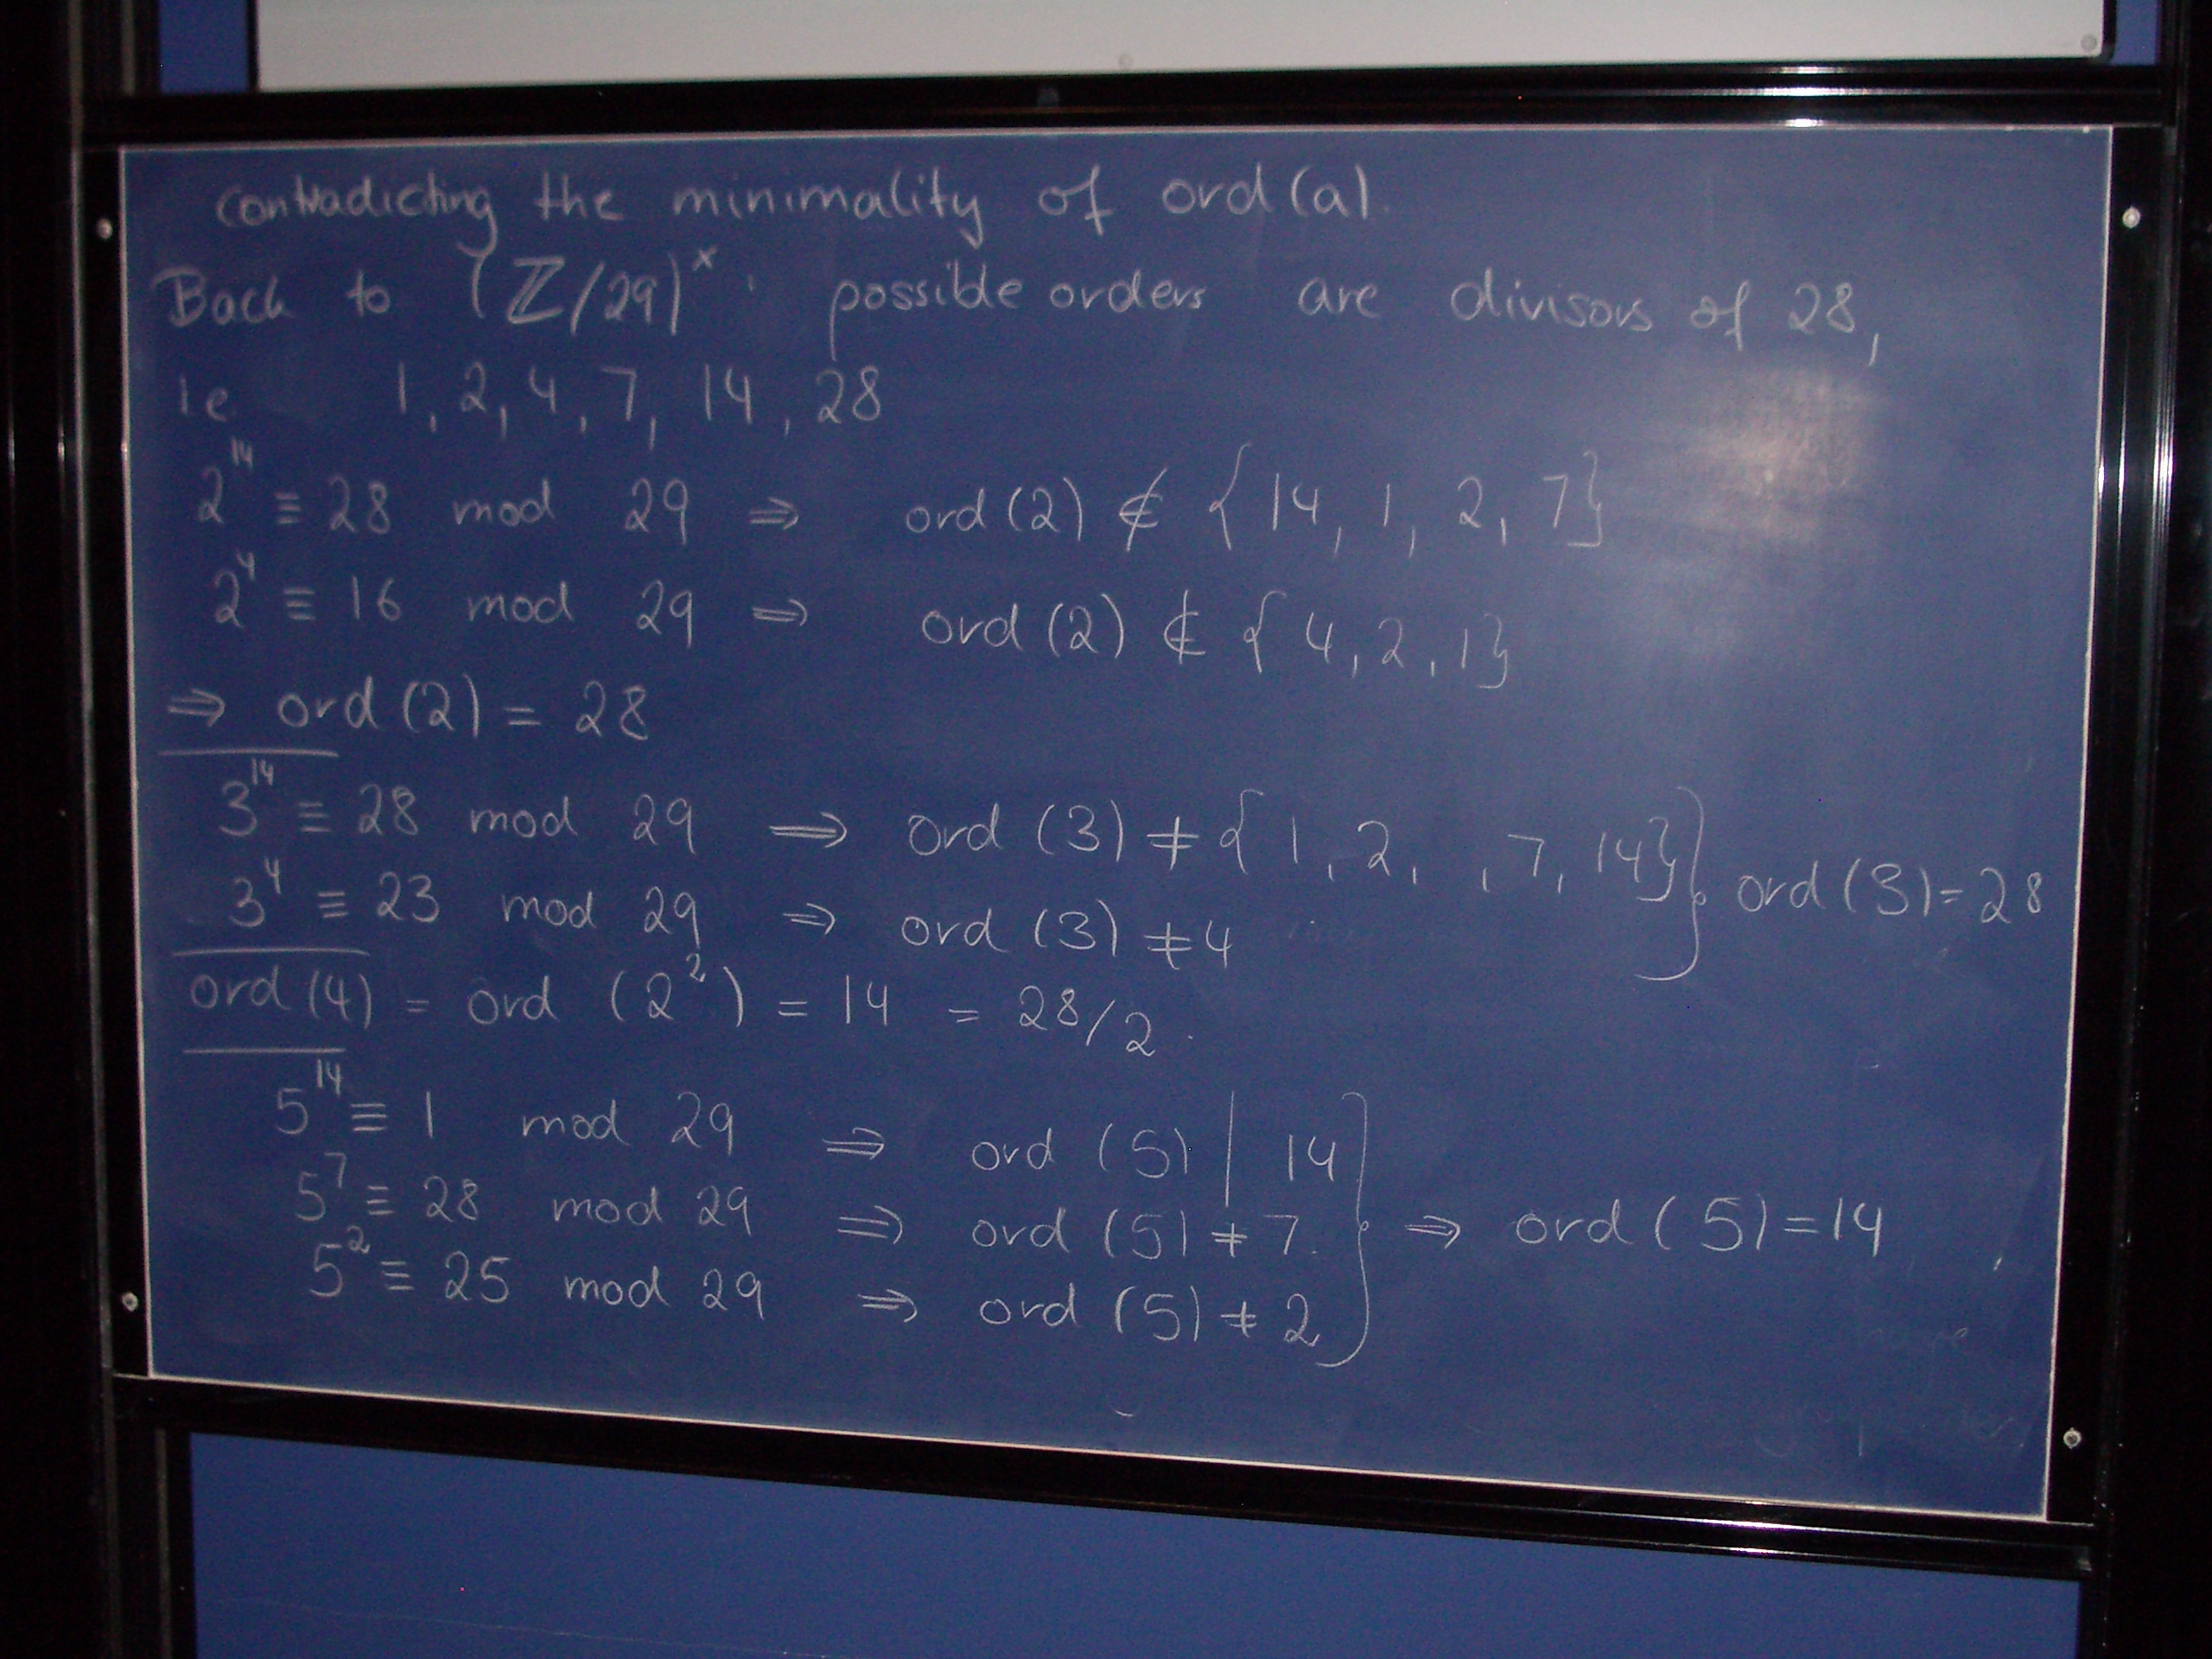 contradicting the minimality of ord(a).
Back to (ℤ/29)ˣ : possible orders are divisors of 28,
ie 1, 2, 4, 7, 14, 28
2¹⁴ ≡ 28 mod 29 ⇒ ord(2) ∉ {14, 1, 2, 7}
2⁴ ≡ 16 mod 29 ⇒ ord(2) ∉ {4, 2, 1}
⇒ ord(2) = 28
3¹⁴ ≡ 28 mod 29 ⇒ ord(3) ≠ {1, 2, , 7, 14}
3⁴ ≡ 23 mod 29 ⇒ ord(3) ≠ 4 } ord(3) = 28
ord(4) = ord(2²) = 14 = 28/2.
5¹⁴ ≡ 1 mod 29 ⇒ ord(5) | 14
5⁷ ≡ 28 mod 29 ⇒ ord(5) ≠ 7. } ⇒ ord(5) = 14
5² ≡ 25 mod 29 ⇒ ord(5) ≠ 2